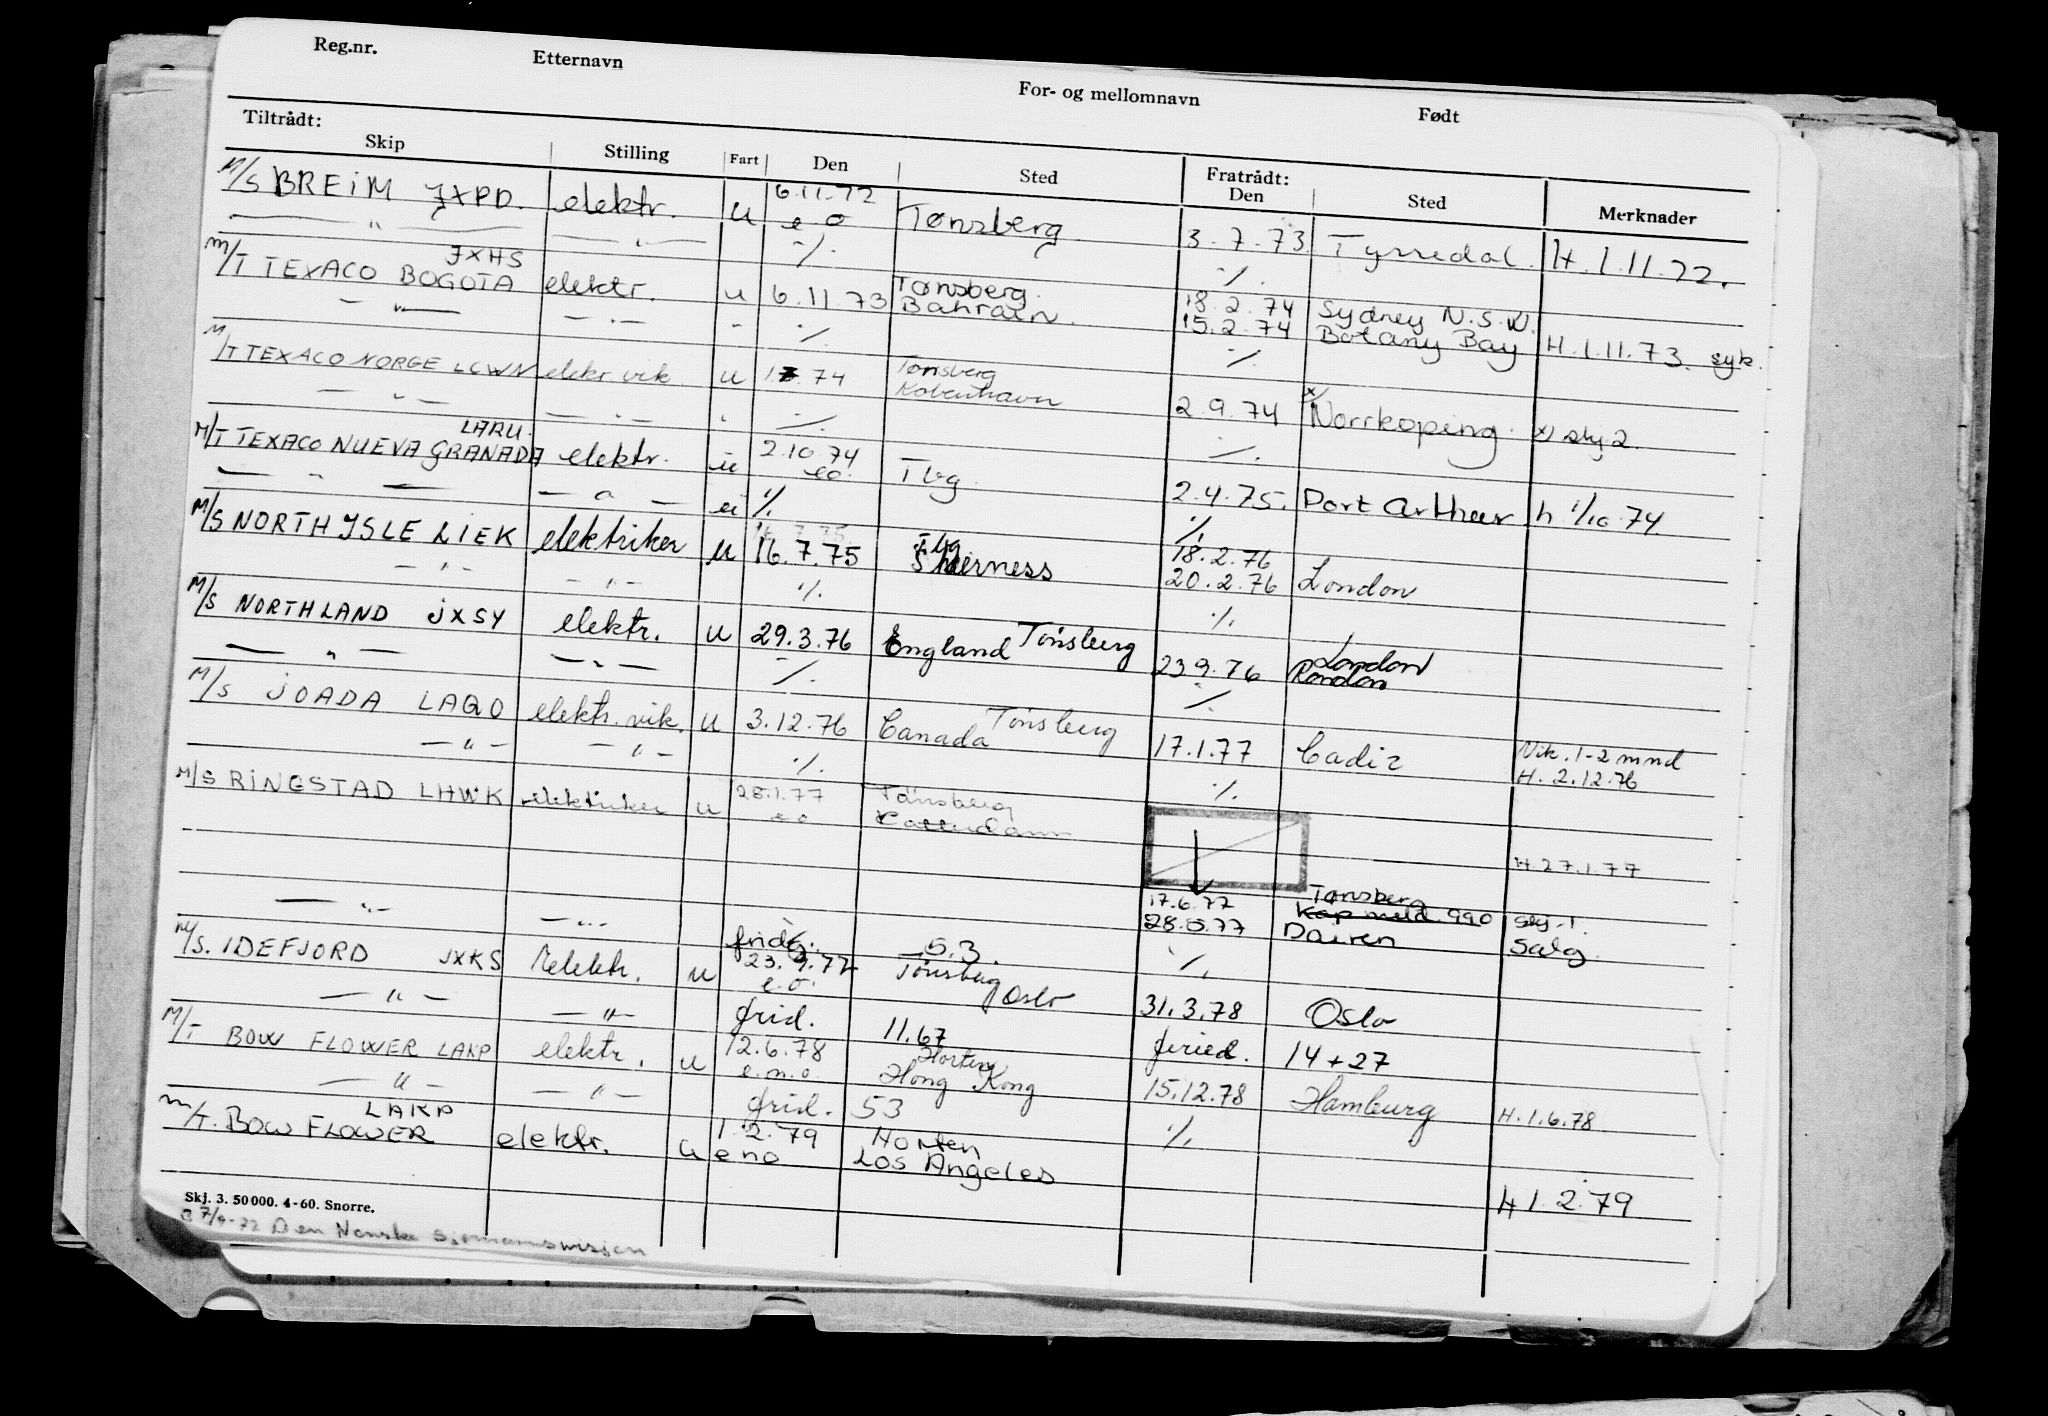 Reg.nr. Etternavn For- og mellomnavn Født
Tiltrådt: Fratrådt:
Skip Stilling Fart Den Sted Den Sted Merknader
M/S BREIM JXPD. elektr. u 6.11.72 Tønsberg 3.7.73 Tyssedal. H.1.11.72.
— " — — " — e o
JXHS ·/. ·/.
M/T TEXACO BOGOTA elektr. u 6.11.73 Tønsberg. 18.2.74 Sydney N.S.W.
— " — — " — " ·/. Bahrain. 15.2.74 Botany Bay H.1.11.73. syk.
M/T TEXACO NORGE LCWN elektr vik u 1.7.74 Tønsberg ·/.
— " — — " — " ·/. København 2.9.74 x/ Norrkøping. x) skj 2.
LARU. 2.10.74 ·/.
M/T TEXACO NUEVA GRANADA elektr. u eo. Tbg. 2.4.75. Port Arthur h 1/10.74.
— " — — " — u ·/. ·/.
M/S NORTH ISLE LIEK elektriker u 16.7.75 Tbg Sheerness 18.2.76
— " — — " — ·/. 20.2.76 London
M/S NORTHLAND JXSY elektr. u 29.3.76 England Tønsberg ·/.
— " — — " — ·/. 23.9.76 London London
M/S JOADA LAQO elektr. vik. u 3.12.76 Canada Tønsberg ·/.
— " — — " — ·/. 17.1.77 Cadiz Vik. 1-2 mnd
H. 2.12.76
M/S RINGSTAD LHWK elektriker u 28.1.77 Tønsberg ·/.
e o Rotterdam
H.27.1.77
17.6.77 Tønsberg
Kap meld. 990 skj.1.
— " — — " — 28.5.77 Dairen Salg
frid. 5.3. ·/.
M/S. IDEFJORD JXKS elektr. u 23.9.77 Tønsberg
— " — — " — e.o. Oslo 31.3.78 Oslo
frid. 11.67 feried. 14+27
M/T BOW FLOWER LAKP elektr. u 12.6.78 Horten
— " — — " — e.n.o. Hong Kong 15.12.78 Hamburg H.1.6.78
LAKP frid. 53
M/T. BOW FLOWER elektr. u 1.2.79 Horten ·/.
e n o Los Angeles
H 1.2.79
Skj. 3. 50 000. 4-60. Snorre.
B 7/9-72 Den Norske Sjømannsmisjon